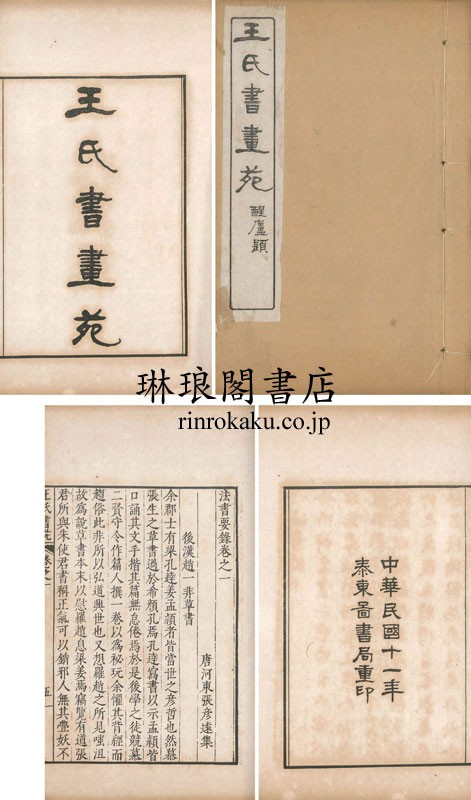 王氏書畫苑
王氏書畫苑
醒廬題
琳琅閣書店
rinrokaku.co.jp
法書要錄卷之一
唐河東張彥遠集
後漢趙一非草書
余郡士有梁孔達姜孟頴者皆當世之彥哲也然慕
張生之草書過於希顏孔焉孔達寫書以示孟頴皆
口誦其文手楷其篇無怠倦焉於是後學之徒競慕
二賢守令作篇人撰一卷以爲祕玩余懼其背經而
趨俗此非所以弘道興世也又想羅趙之所見嗤沮
故爲說草書本末以慰羅趙息梁姜焉竊覽有道張
君所與朱使君書稱正氣可以銷邪人無其釁妖不
王氏書苑
卷之一
五
中華民國十一年
泰東圖書局重印